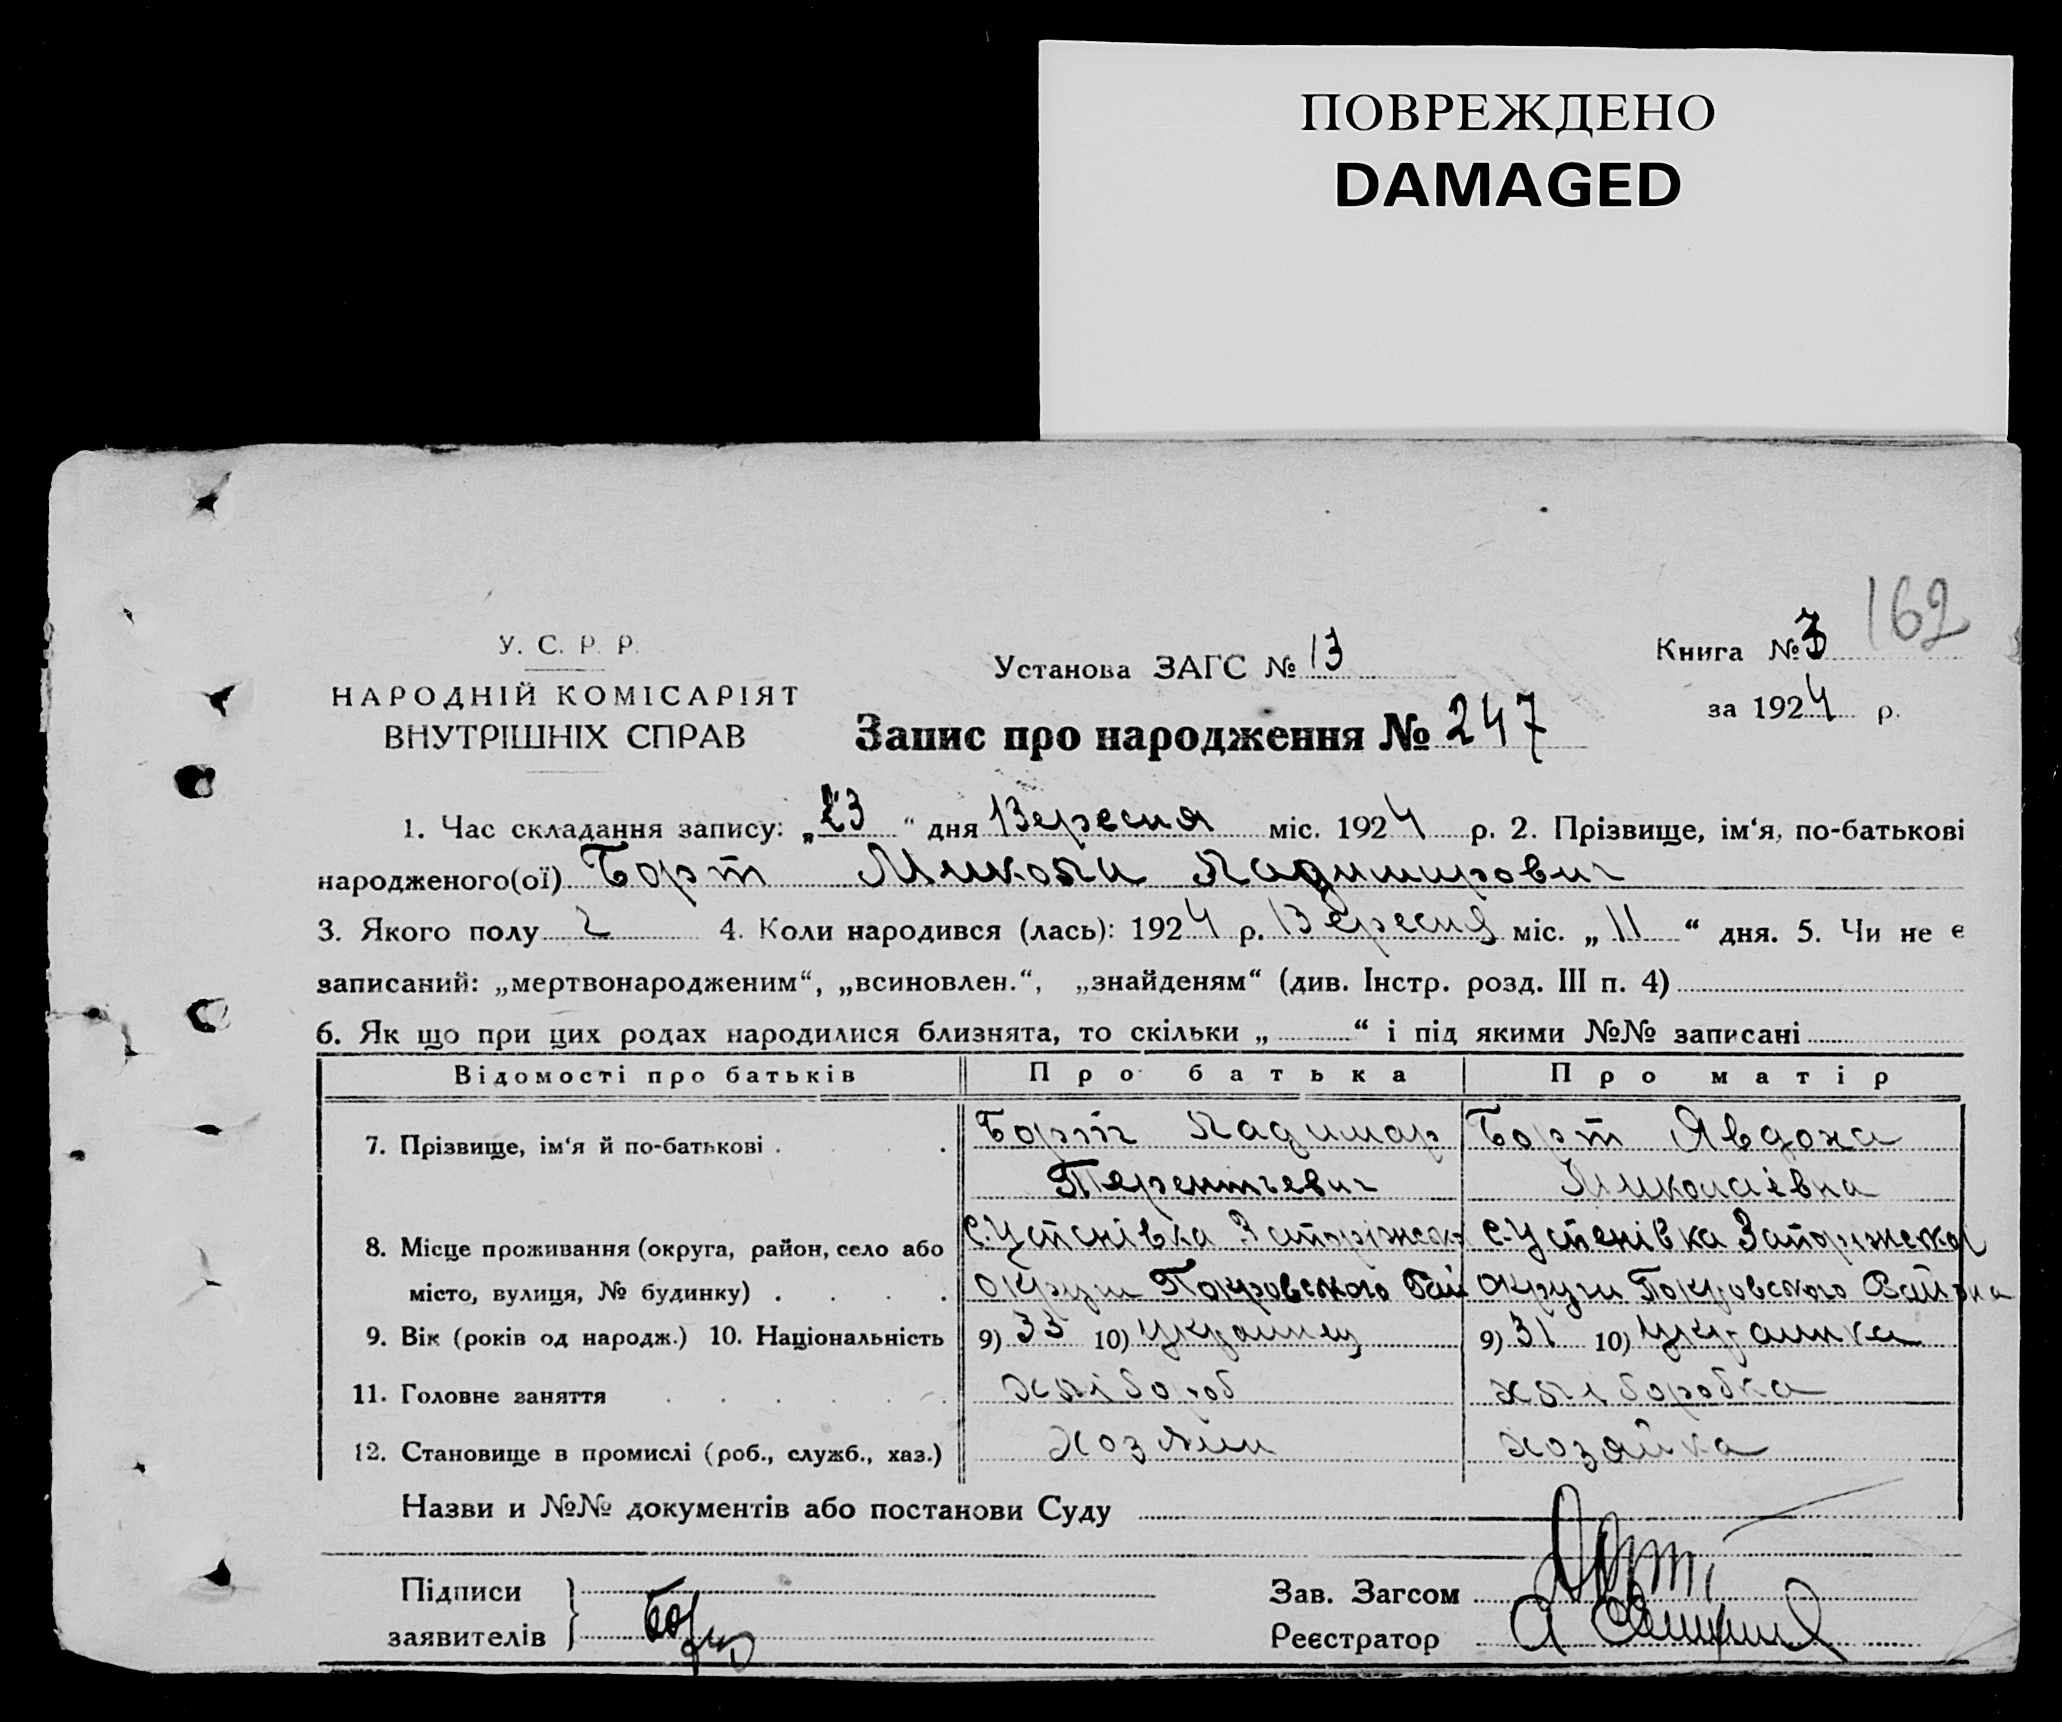 ПОВРЕЖДЕНО
DAMAGED
162
У. С. Р. Р.
НАРОДНІЙ КОМІСАРІЯТ
ВНУТРІШНІХ СПРАВ
Установа ЗАГС № 13
Книга № 3
за 1924 р.
Запис про народження № 247
1. Час складання запису: „23“ дня Вересня міс. 1924 р. 2. Прізвище, ім‘я, по-батькові
народженого(ої) Борт Микола Ладимирович
3. Якого полу Ч 4. Коли народився (лась): 1924 р. Вересня міс. „11“ дня. 5. Чи не є
записаний: „мертвонародженим“, „всиновлен.“, „знайденям“ (див. Інстр. розд. III п. 4)
6. Як що при цих родах народилися близнята, то скільки „ “ і під якими №№ записані
Відомості про батьків Про батька Про матір
7. Прізвище, ім‘я й по-батькові Борт Ладимар Борт Явдоха
Терентьевич Миколаівна
8. Місце проживання (округа, район, село або с. Успенівка Запоріжськ с. Успенівка Запоріжської
місто, вулиця, № будинку) округи Покровського Рай округи Покровського Района
9. Вік (років од народж.) 10. Національність 9) 33 10) Українец 9) 31 10) Українка
11. Головне заняття хлібороб хліборобка
12. Становище в промислі (роб., служб., хаз.) хозяин хозяйка
Назви и №№ документів або постанови Суду
Підписи
заявителів } Борт
Зав. Загсом
Реєстратор